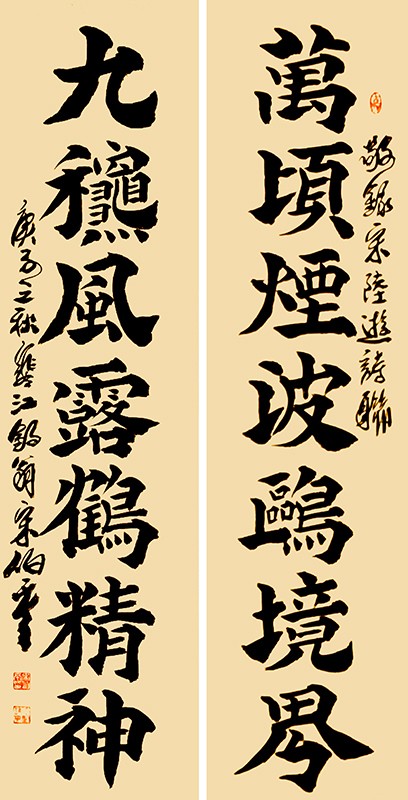 敬錄宋陸遊詩聯
萬頃煙波鷗境界
九龝風露鶴精神
庚子之秋江釣翁宋伯